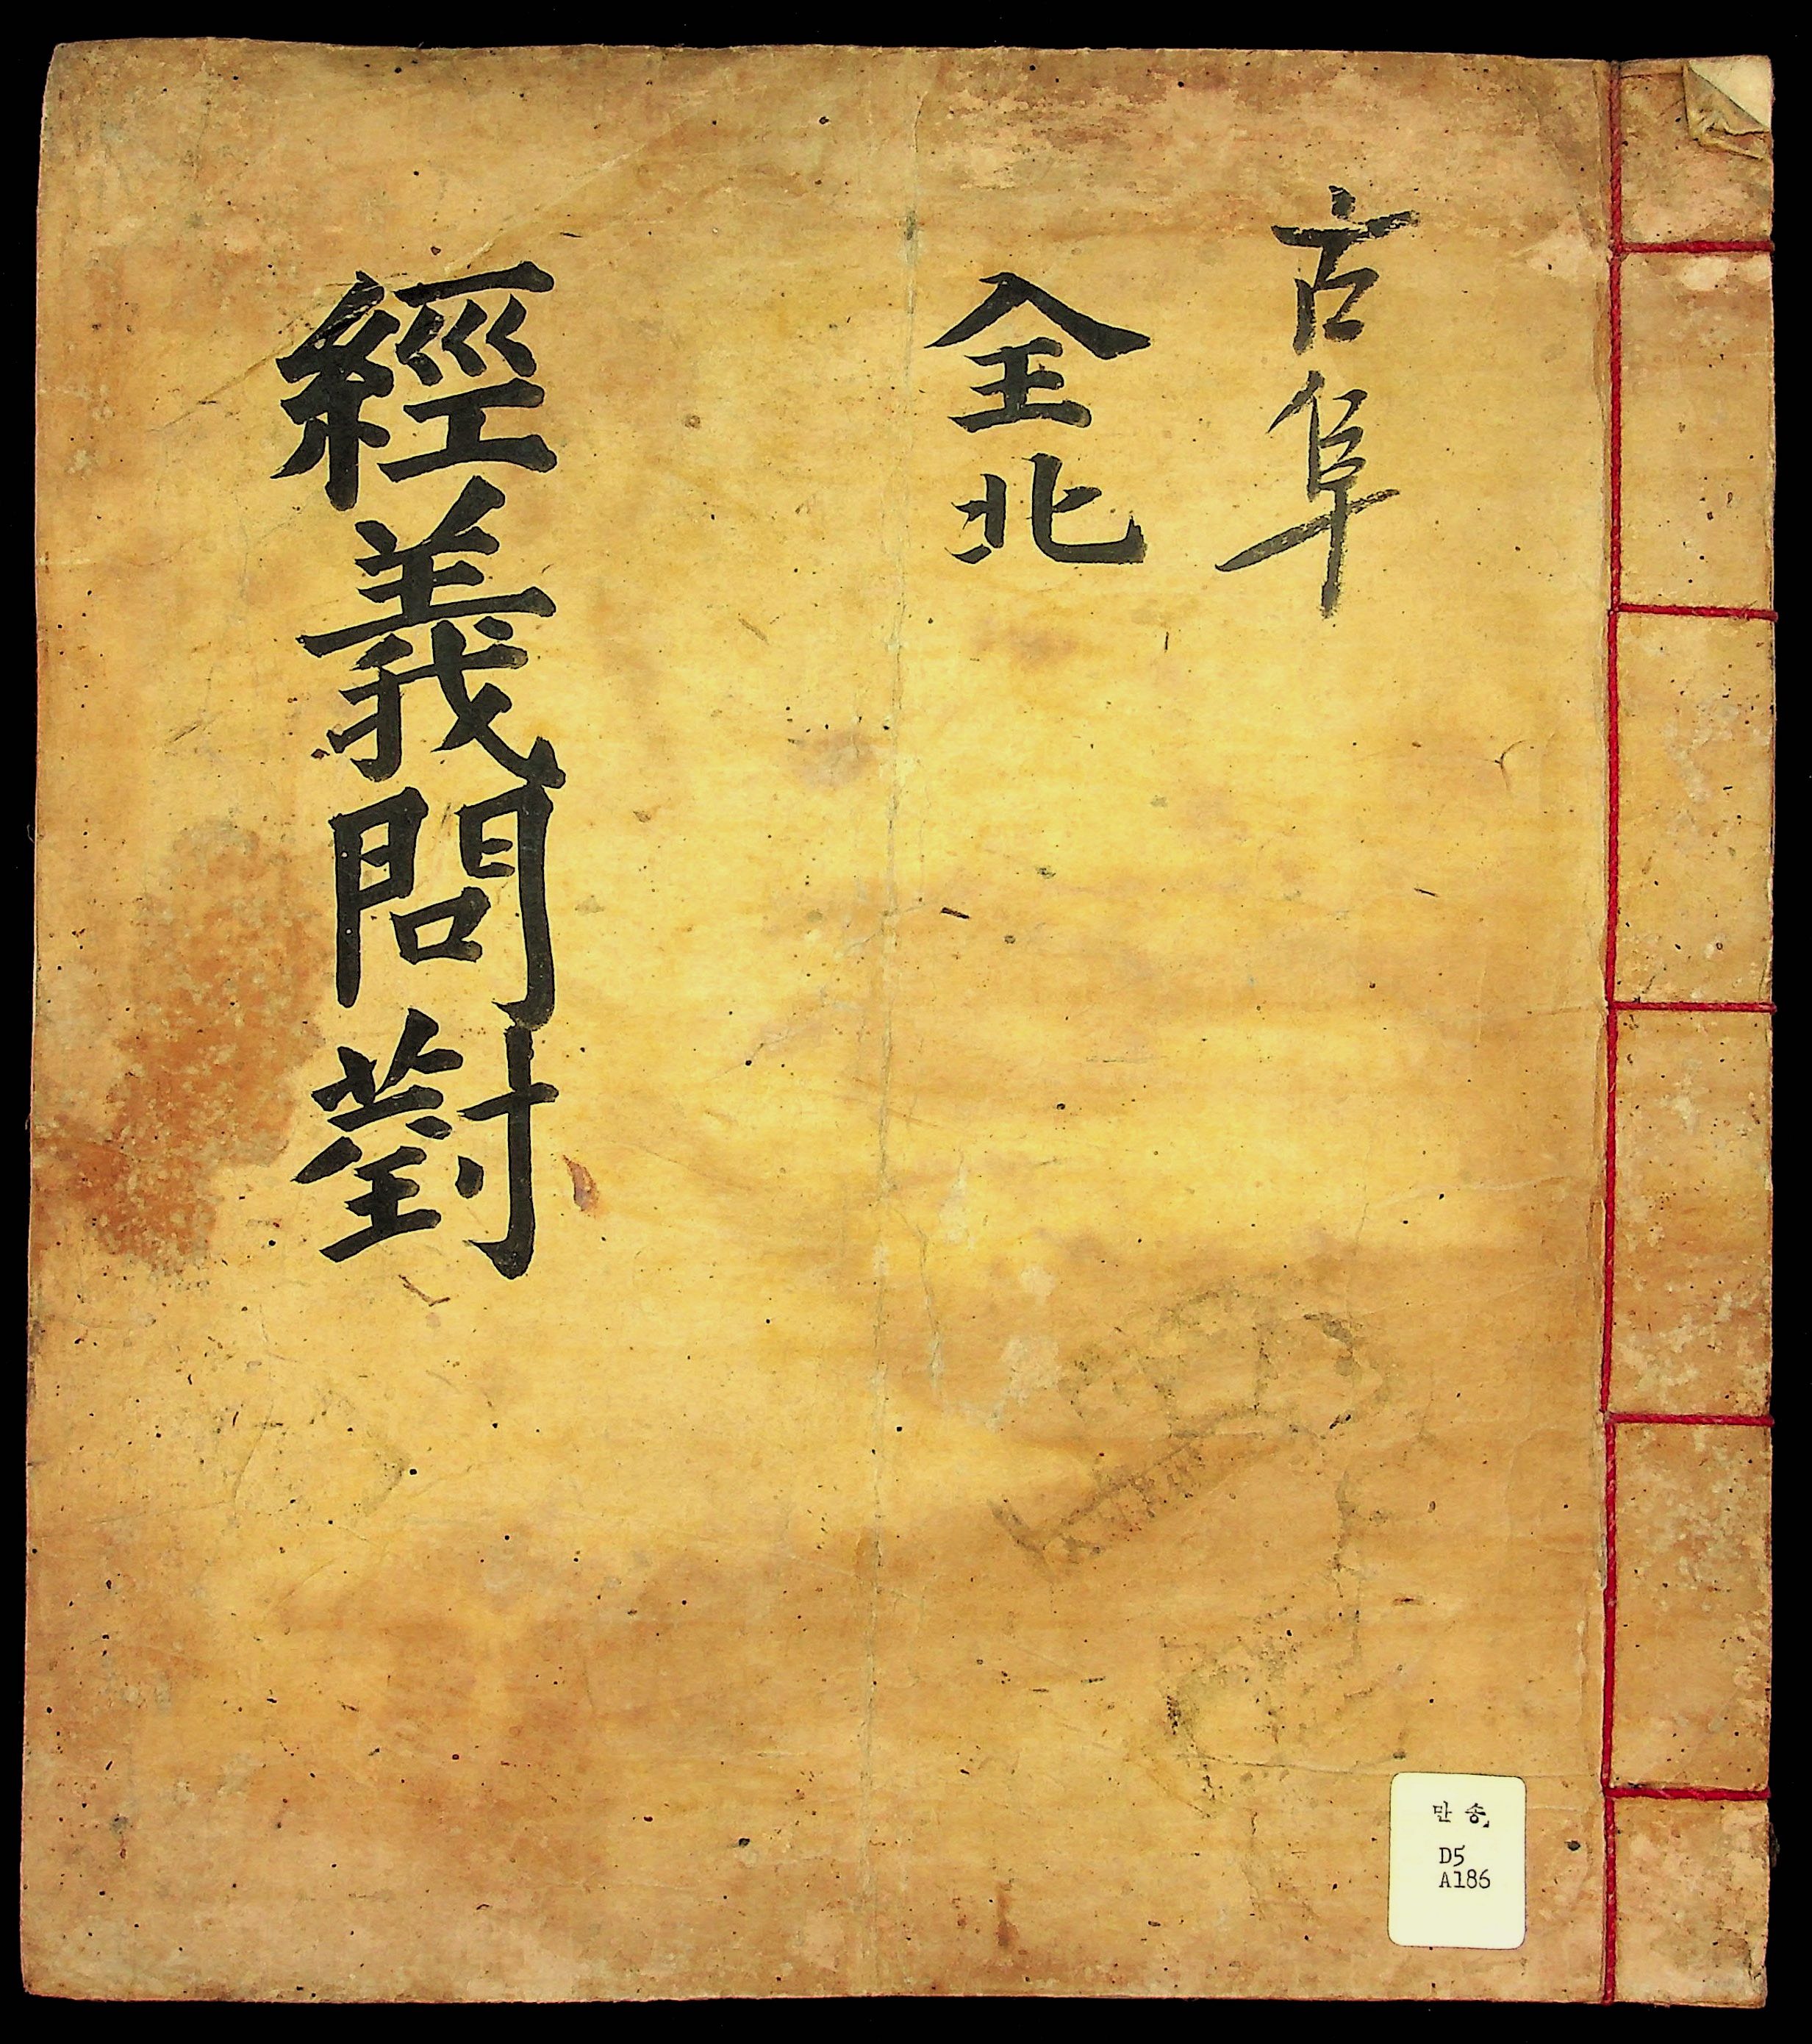 古阜
全北
經義問對
만송
D5
A186